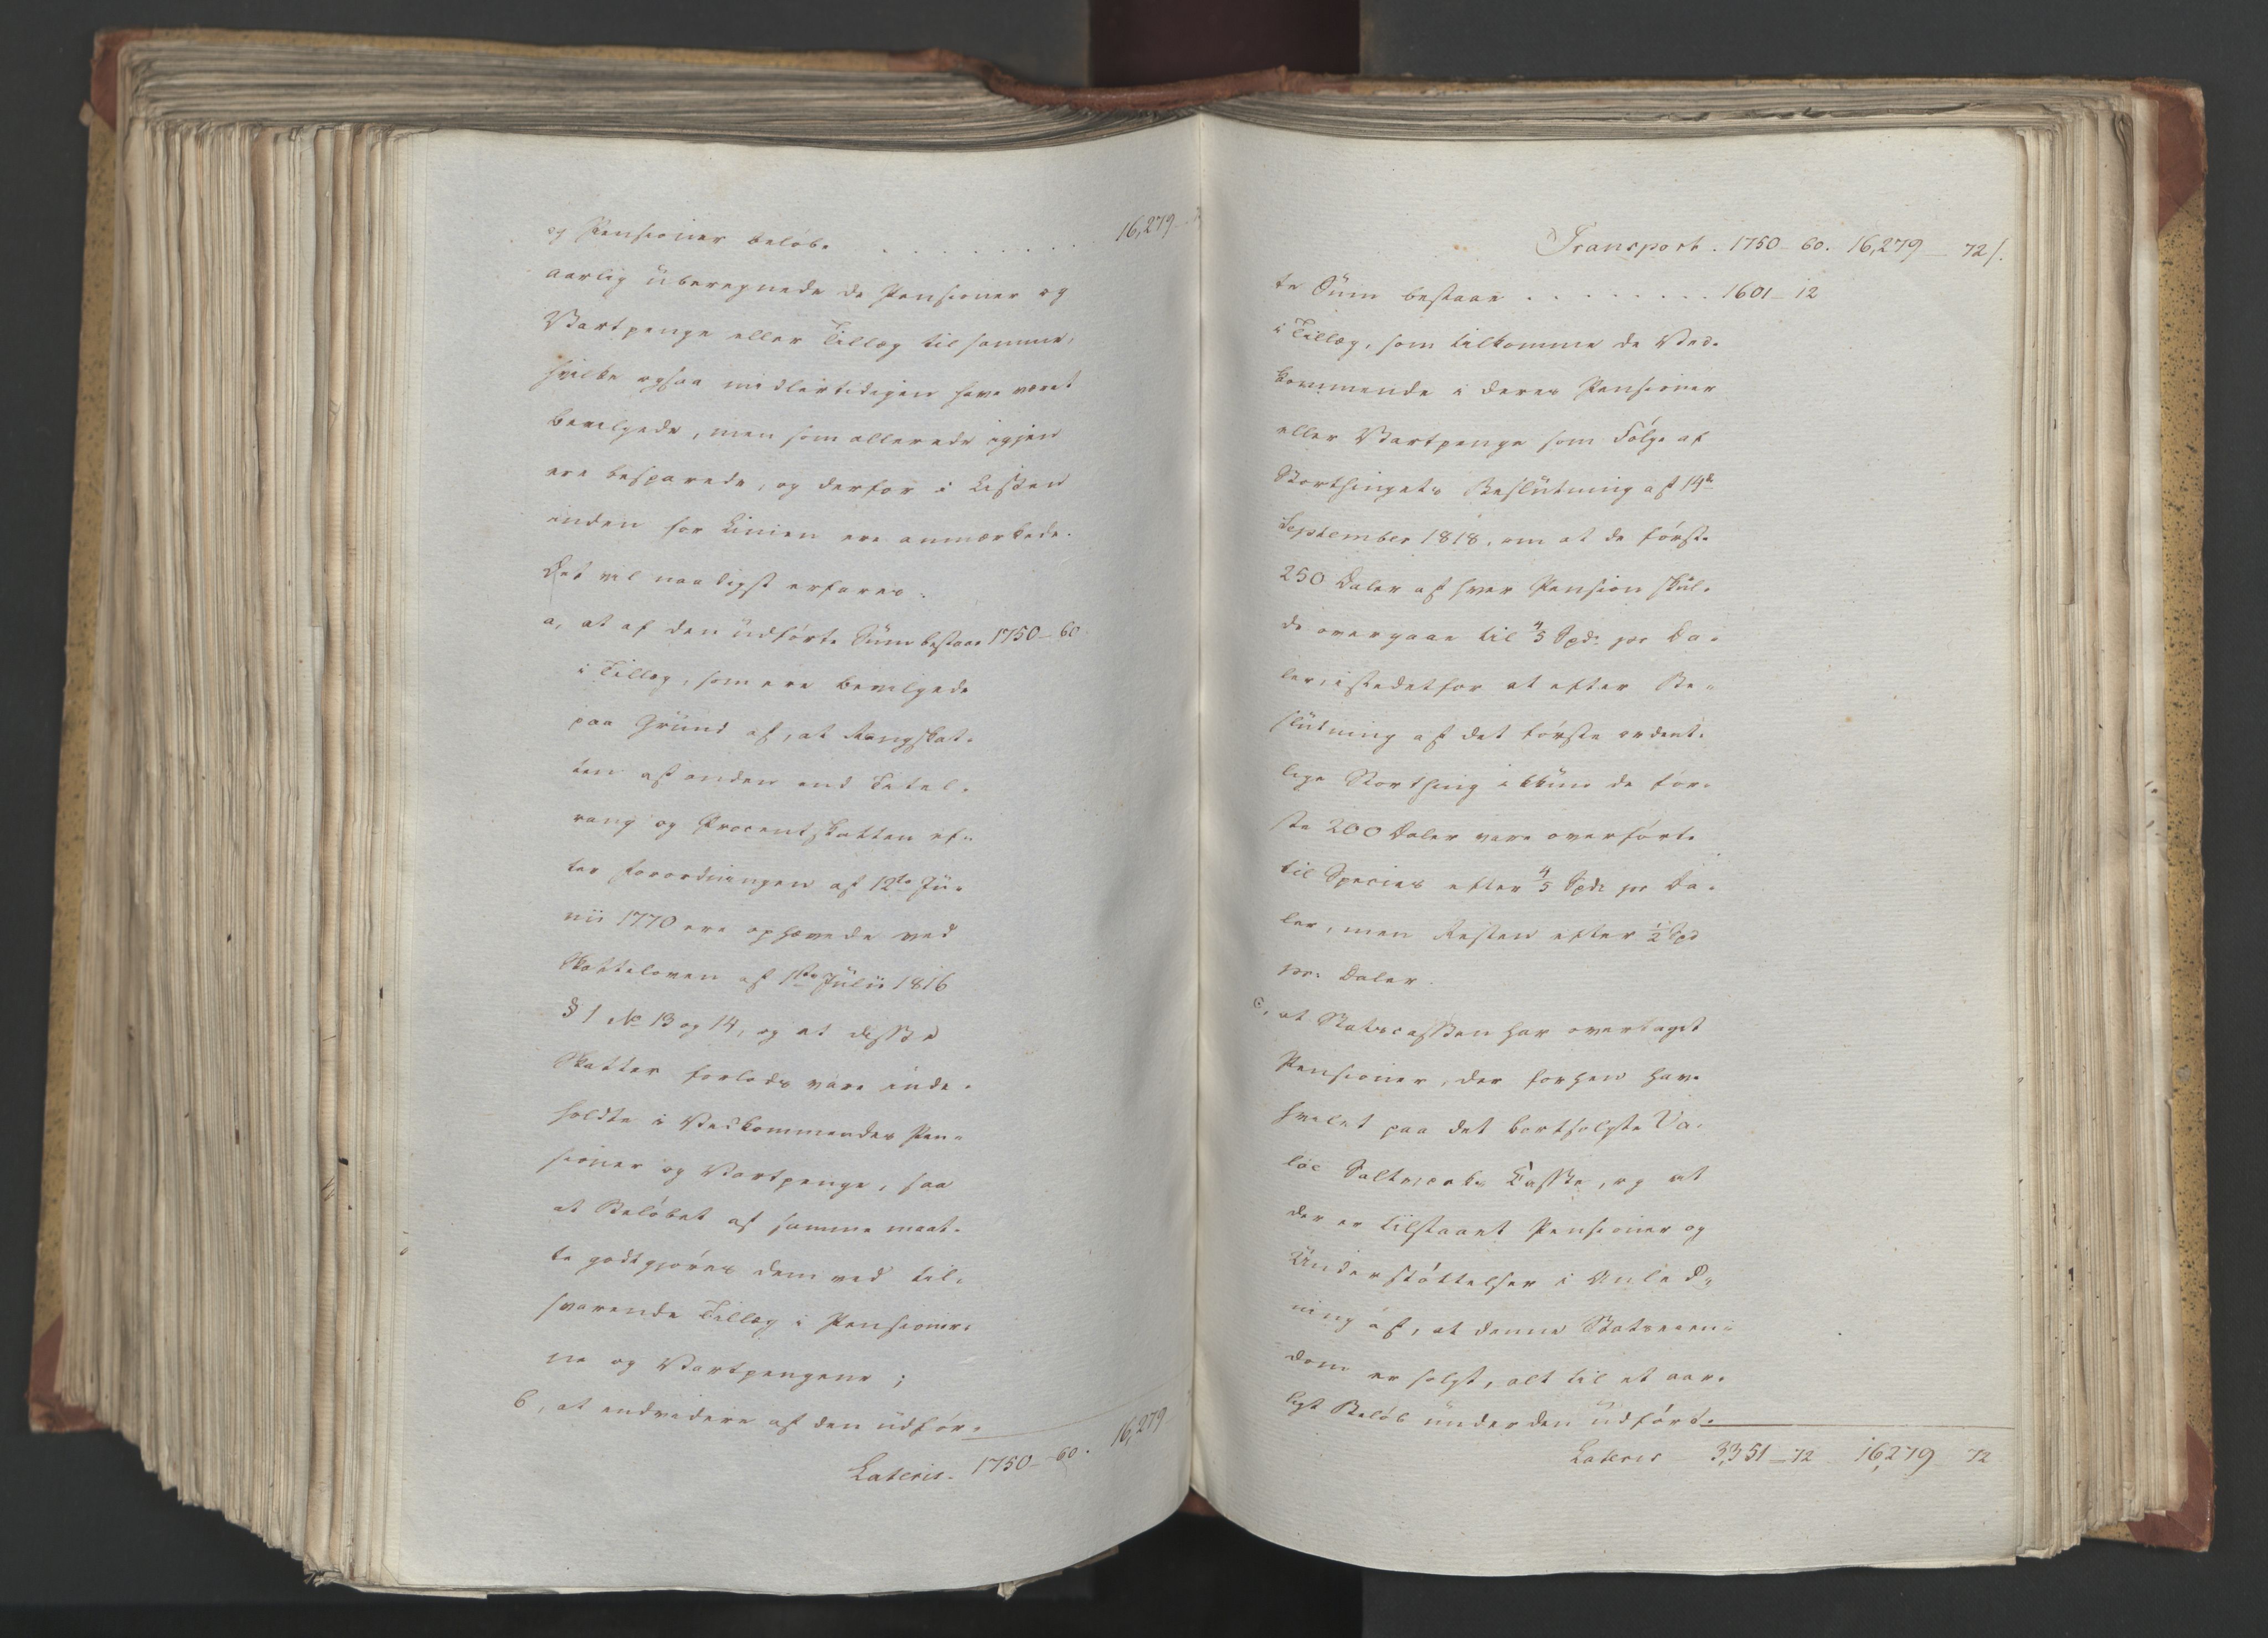 og Pensioner beløbe . . . . . . . . . 16,279
aarlig uberegnede de Pensioner og
Vartpenge eller Tillæg til samme,
hvilke ogsaa midlertidigen have været
bevilgede, men som allerede igjen
ere besparede, og derfor i Listen
inden for Linien ere anmærkede.
Det vil naadigst erfares:
a, at af den udførte Sum bestaae 1750 - 60
i Tillæg, som ere bevilgede
paa Grund af, at Rangskat-
ten af anden end Titel-
rang og Procentskatten ef-
ter Forordningen af 12te Ju-
nii 1770 ere ophævede ved
Skatteloven af 1ste Julii 1816
§ 1 No 13 og 14, og at disse
Skatter forlods vare inde-
holdte i Vedkommendes Pen-
sioner og Vartpenge, saa
at Beløbet af samme maat-
te godtgjøres dem ved til-
svarende Tillæg i Pensioner-
ne og Vartpengene;
b, at endvidere af den udfør-
Lateris - 1750 - 60. 16,279
Transport. 1750 - 60. 16,279 - 72 s.
te Sum bestaae . . . . . . . . 1601 - 12
i Tillæg, som tilkomme de Ved-
kommende i deres Pensioner
eller Vartpenge som Følge af
Storthingets Beslutning af 14de
September 1818, om at de første
250 Daler af hver Pension skul-
de overgaae til 4/5 Spd. pr Da-
ler, istedetfor at efter Be-
slutning af det første ordent-
lige Storthing ikkun de før-
ste 200 Daler vare overførte
til Species efter 4/5 Spd. pr Da-
ler, men Resten efter 1/2 Spd
pr. Daler.
c, at Statscassen har overtaget
Pensioner, der forhen have
hvilet paa det bortsolgte Va-
løe Saltværks Kasse, og at
der er tilstaaet Pensioner og
Understøttelser i Anled-
ning af, at denne Statseien-
dom er solgt, alt til et aar-
ligt Beløb under den udførte
Lateris 3,351 - 72 16,279 72